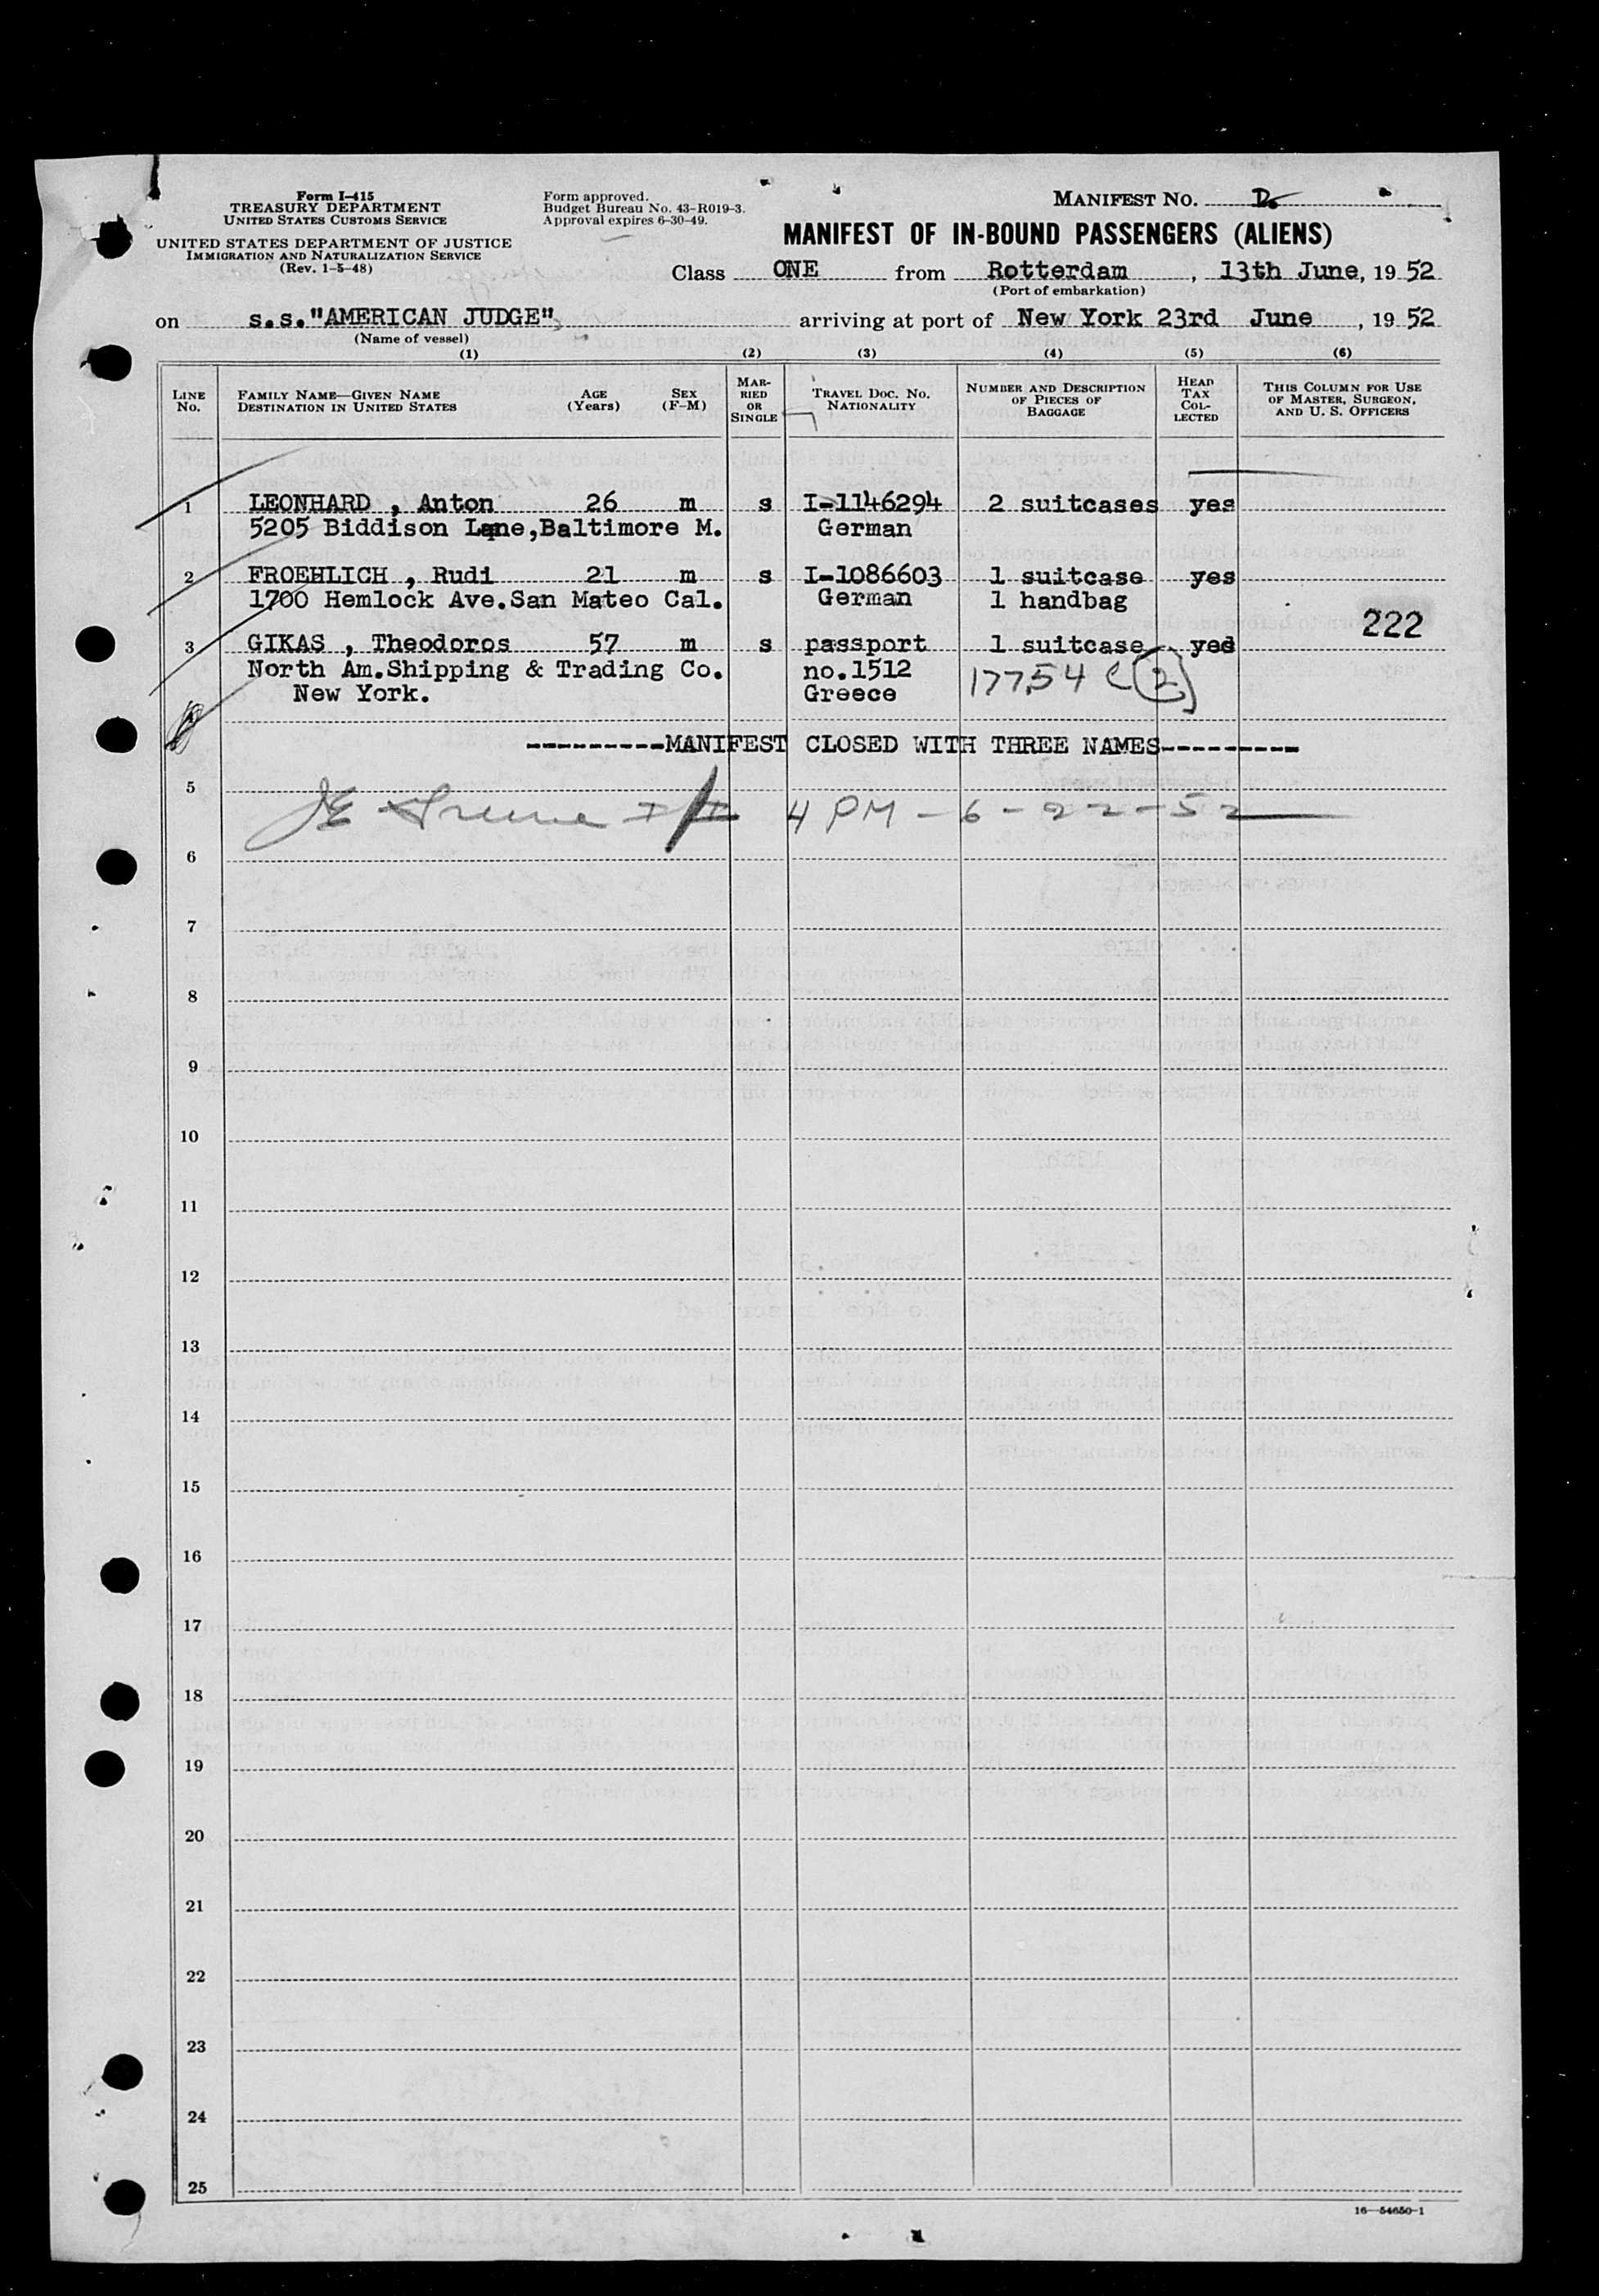 Form I-415
TREASURY DEPARTMENT
UNITED STATES CUSTOMS SERVICE
UNITED STATES DEPARTMENT OF JUSTICE
IMMIGRATION AND NATURALIZATION SERVICE
(Rev. 1-5-48)
Form approved.
Budget Bureau No. 43-R019-3.
Approval expires 6-30-49.
MANIFEST NO.
MANIFEST OF IN-BOUND PASSENGERS (ALIENS)
Class ONE from Rotterdam, 13th June, 19 52
(Port of embarkation)
on s.s."AMERICAN JUDGE", arriving at port of New York 23rd June, 19 52
(Name of vessel)
(1) (2) (3) (4) (5) (6)
LINE No.
FAMILY NAME—GIVEN NAME
DESTINATION IN UNITED STATES
AGE (Years)
SEX (F-M)
MARRIED OR SINGLE
TRAVEL DOC. NO.
NATIONALITY
NUMBER AND DESCRIPTION OF PIECES OF BAGGAGE
HEAD TAX COLLECTED
THIS COLUMN FOR USE OF MASTER, SURGEON, AND U. S. OFFICERS
1 LEONHARD , Anton 26 m s I-1146294 2 suitcases yes
5205 Biddison Lane,Baltimore M. German
2 FROEHLICH , Rudi 21 m s I-1086603 1 suitcase yes
1700 Hemlock Ave.San Mateo Cal. German 1 handbag
222
3 GIKAS , Theodoros 57 m s passport 1 suitcase yes
North Am.Shipping & Trading Co. no.1512 17754 2
New York. Greece
---------MANIFEST CLOSED WITH THREE NAMES---------
5
4 PM - 6 - 22 - 52
6
7
8
9
10
11
12
13
14
15
16
17
18
19
20
21
22
23
24
25
16—54650-1